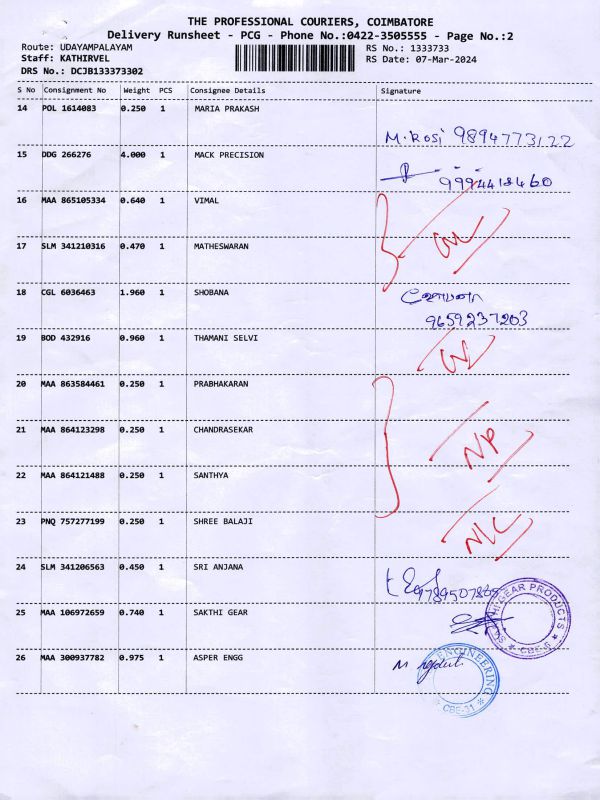 THE PROFESSIONAL COURIERS, COIMBATORE
Delivery Runsheet - PCG - Phone No.:0422-3505555 - Page No.:2
Route: UDAYAMPALAYAM
RS No.: 1333733
Staff: KATHIRVEL
RS Date: 07-Mar-2024
DRS No.: DCJB133373302
S No Consignment No Weight PCS Consignee Details Signature
14 POL 1614083 0.250 1 MARIA PRAKASH
M.Rosi 9894773122
15 DDG 266276 4.000 1 MACK PRECISION
9994418460
16 MAA 865105334 0.640 1 VIMAL
17 SLM 341210316 0.470 1 MATHESWARAN
18 CGL 6036463 1.960 1 SHOBANA
9659237203
19 BOD 432916 0.960 1 THAMANI SELVI
20 MAA 863584461 0.250 1 PRABHAKARAN
21 MAA 864123298 0.250 1 CHANDRASEKAR
NP
22 MAA 864121488 0.250 1 SANTHYA
23 PNQ 757277199 0.250 1 SHREE BALAJI
N/C
24 SLM 341206563 0.450 1 SRI ANJANA
25 MAA 106972659 0.740 1 SAKTHI GEAR
SAKTHI GEAR PRODUCTS
CBE-6
26 MAA 300937782 0.975 1 ASPER ENGG
ENGINEERING
CBE-31